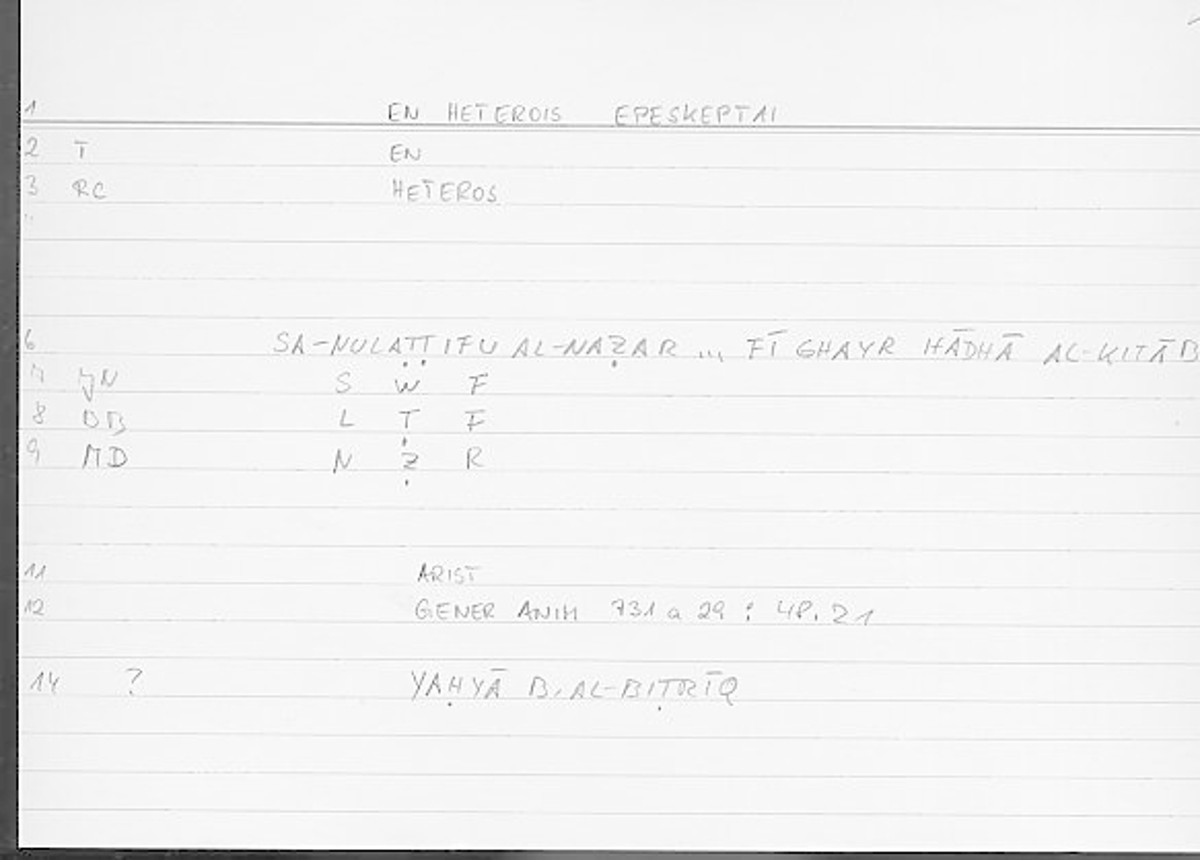 1 EN HETEROIS EPESKEPTAI
2 T EN
3 RC HETEROS
6 SA-NULAṬṬIFU AL-NAẒAR ... FĪ GHAYR HĀDHĀ AL-KITĀB
7 JN S W F
8 BB L Ṭ F
9 MD N Ẓ R
11 ARIST
12 GENER ANIM 731 a 29 : 48.21
14 ? YAḤYĀ B. AL-BIṬRĪQ